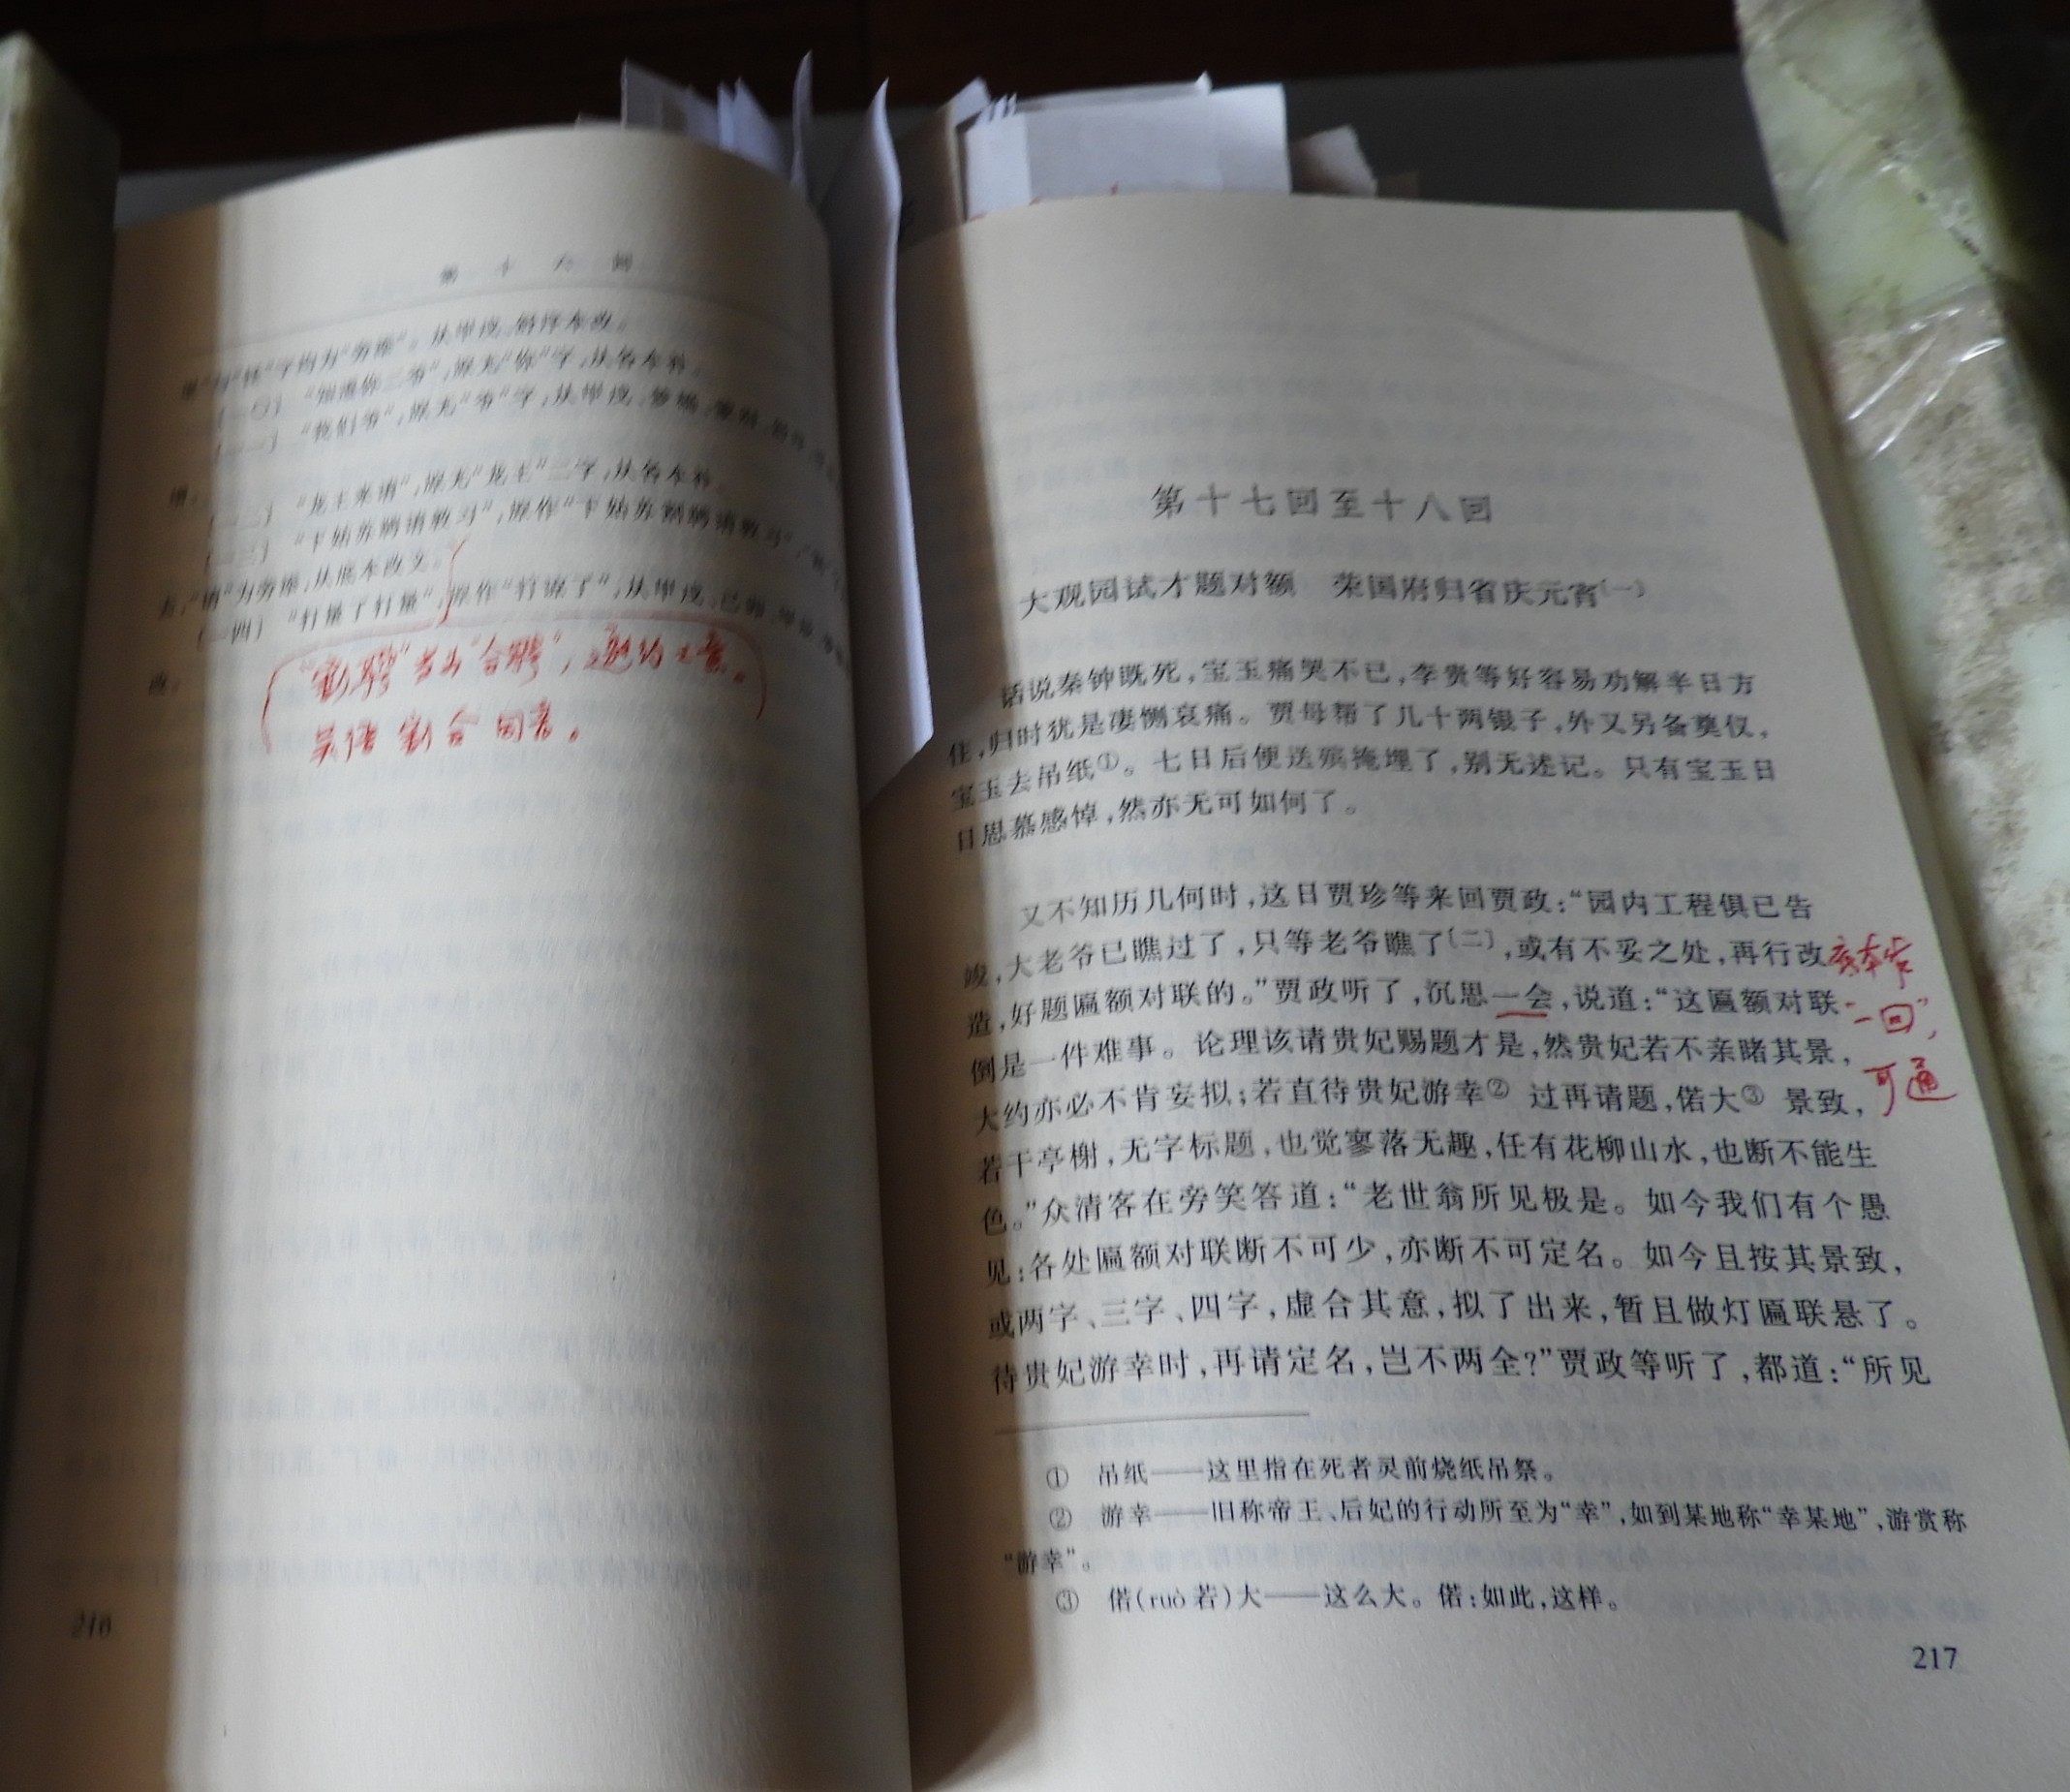 第十六回
〔一〇〕 “知道你二爷”,原无“你”字,从各本补。
〔一一〕 “我们爷”,原无“爷”字,从甲戌、
〔一二〕 “龙王来请”,原无“龙王”二字,从各本补。
〔一三〕 “下姑苏聘请教习”,原作“下姑苏割聘请教习”
为旁添,从底本改文。
〔一四〕 “打量了打量”,原作“打谅了”,从甲戌、己卯、
改。
“割聘”当为“合聘”,邀约之意。
吴语割合同音。
216
第十七回至十八回
大观园试才题对额 荣国府归省庆元宵〔一〕
话说秦钟既死,宝玉痛哭不已,李贵等好容易劝解半日方
住,归时犹是凄恻哀痛。贾母帮了几十两银子,外又另备奠仪,
宝玉去吊纸①。七日后便送殡掩埋了,别无述记。只有宝玉日
日思慕感悼,然亦无可如何了。
又不知历几何时,这日贾珍等来回贾政:“园内工程俱已告
竣,大老爷已瞧过了,只等老爷瞧了〔二〕,或有不妥之处,再行改
造,好题匾额对联的。”贾政听了,沉思一会,说道:“这匾额对联
倒是一件难事。论理该请贵妃赐题才是,然贵妃若不亲睹其景,
大约亦必不肯妄拟;若直待贵妃游幸② 过再请题,偌大③ 景致,
若干亭榭,无字标题,也觉寥落无趣,任有花柳山水,也断不能生
色。”众清客在旁笑答道:“老世翁所见极是。如今我们有个愚
见:各处匾额对联断不可少,亦断不可定名。如今且按其景致,
或两字、三字、四字,虚合其意,拟了出来,暂且做灯匾联悬了。
待贵妃游幸时,再请定名,岂不两全?”贾政等听了,都道:“所见
底本作
“一回”,
可通
① 吊纸——这里指在死者灵前烧纸吊祭。
② 游幸——旧称帝王、后妃的行动所至为“幸”,如到某地称“幸某地”,游赏称
“游幸”。
③ 偌(ruò 若)大——这么大。偌:如此,这样。
217